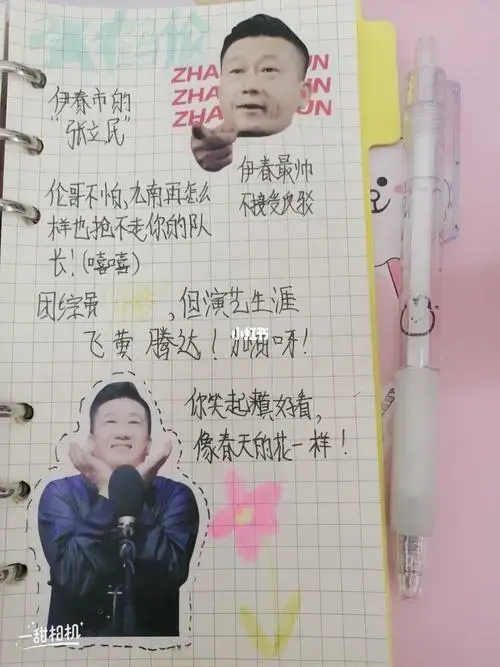 ZHA UN
ZHA UN
ZHA UN
伊春市的
“张立民”
伊春最帅
不接受反驳
伦哥不怕,九南再怎么
样也抢不走你的队
长!(嘻嘻)
团综虽
,但演艺生涯
飞黄腾达!加油呀!
小红书
你笑起来真好看,
像春天的花一样!
一甜相机